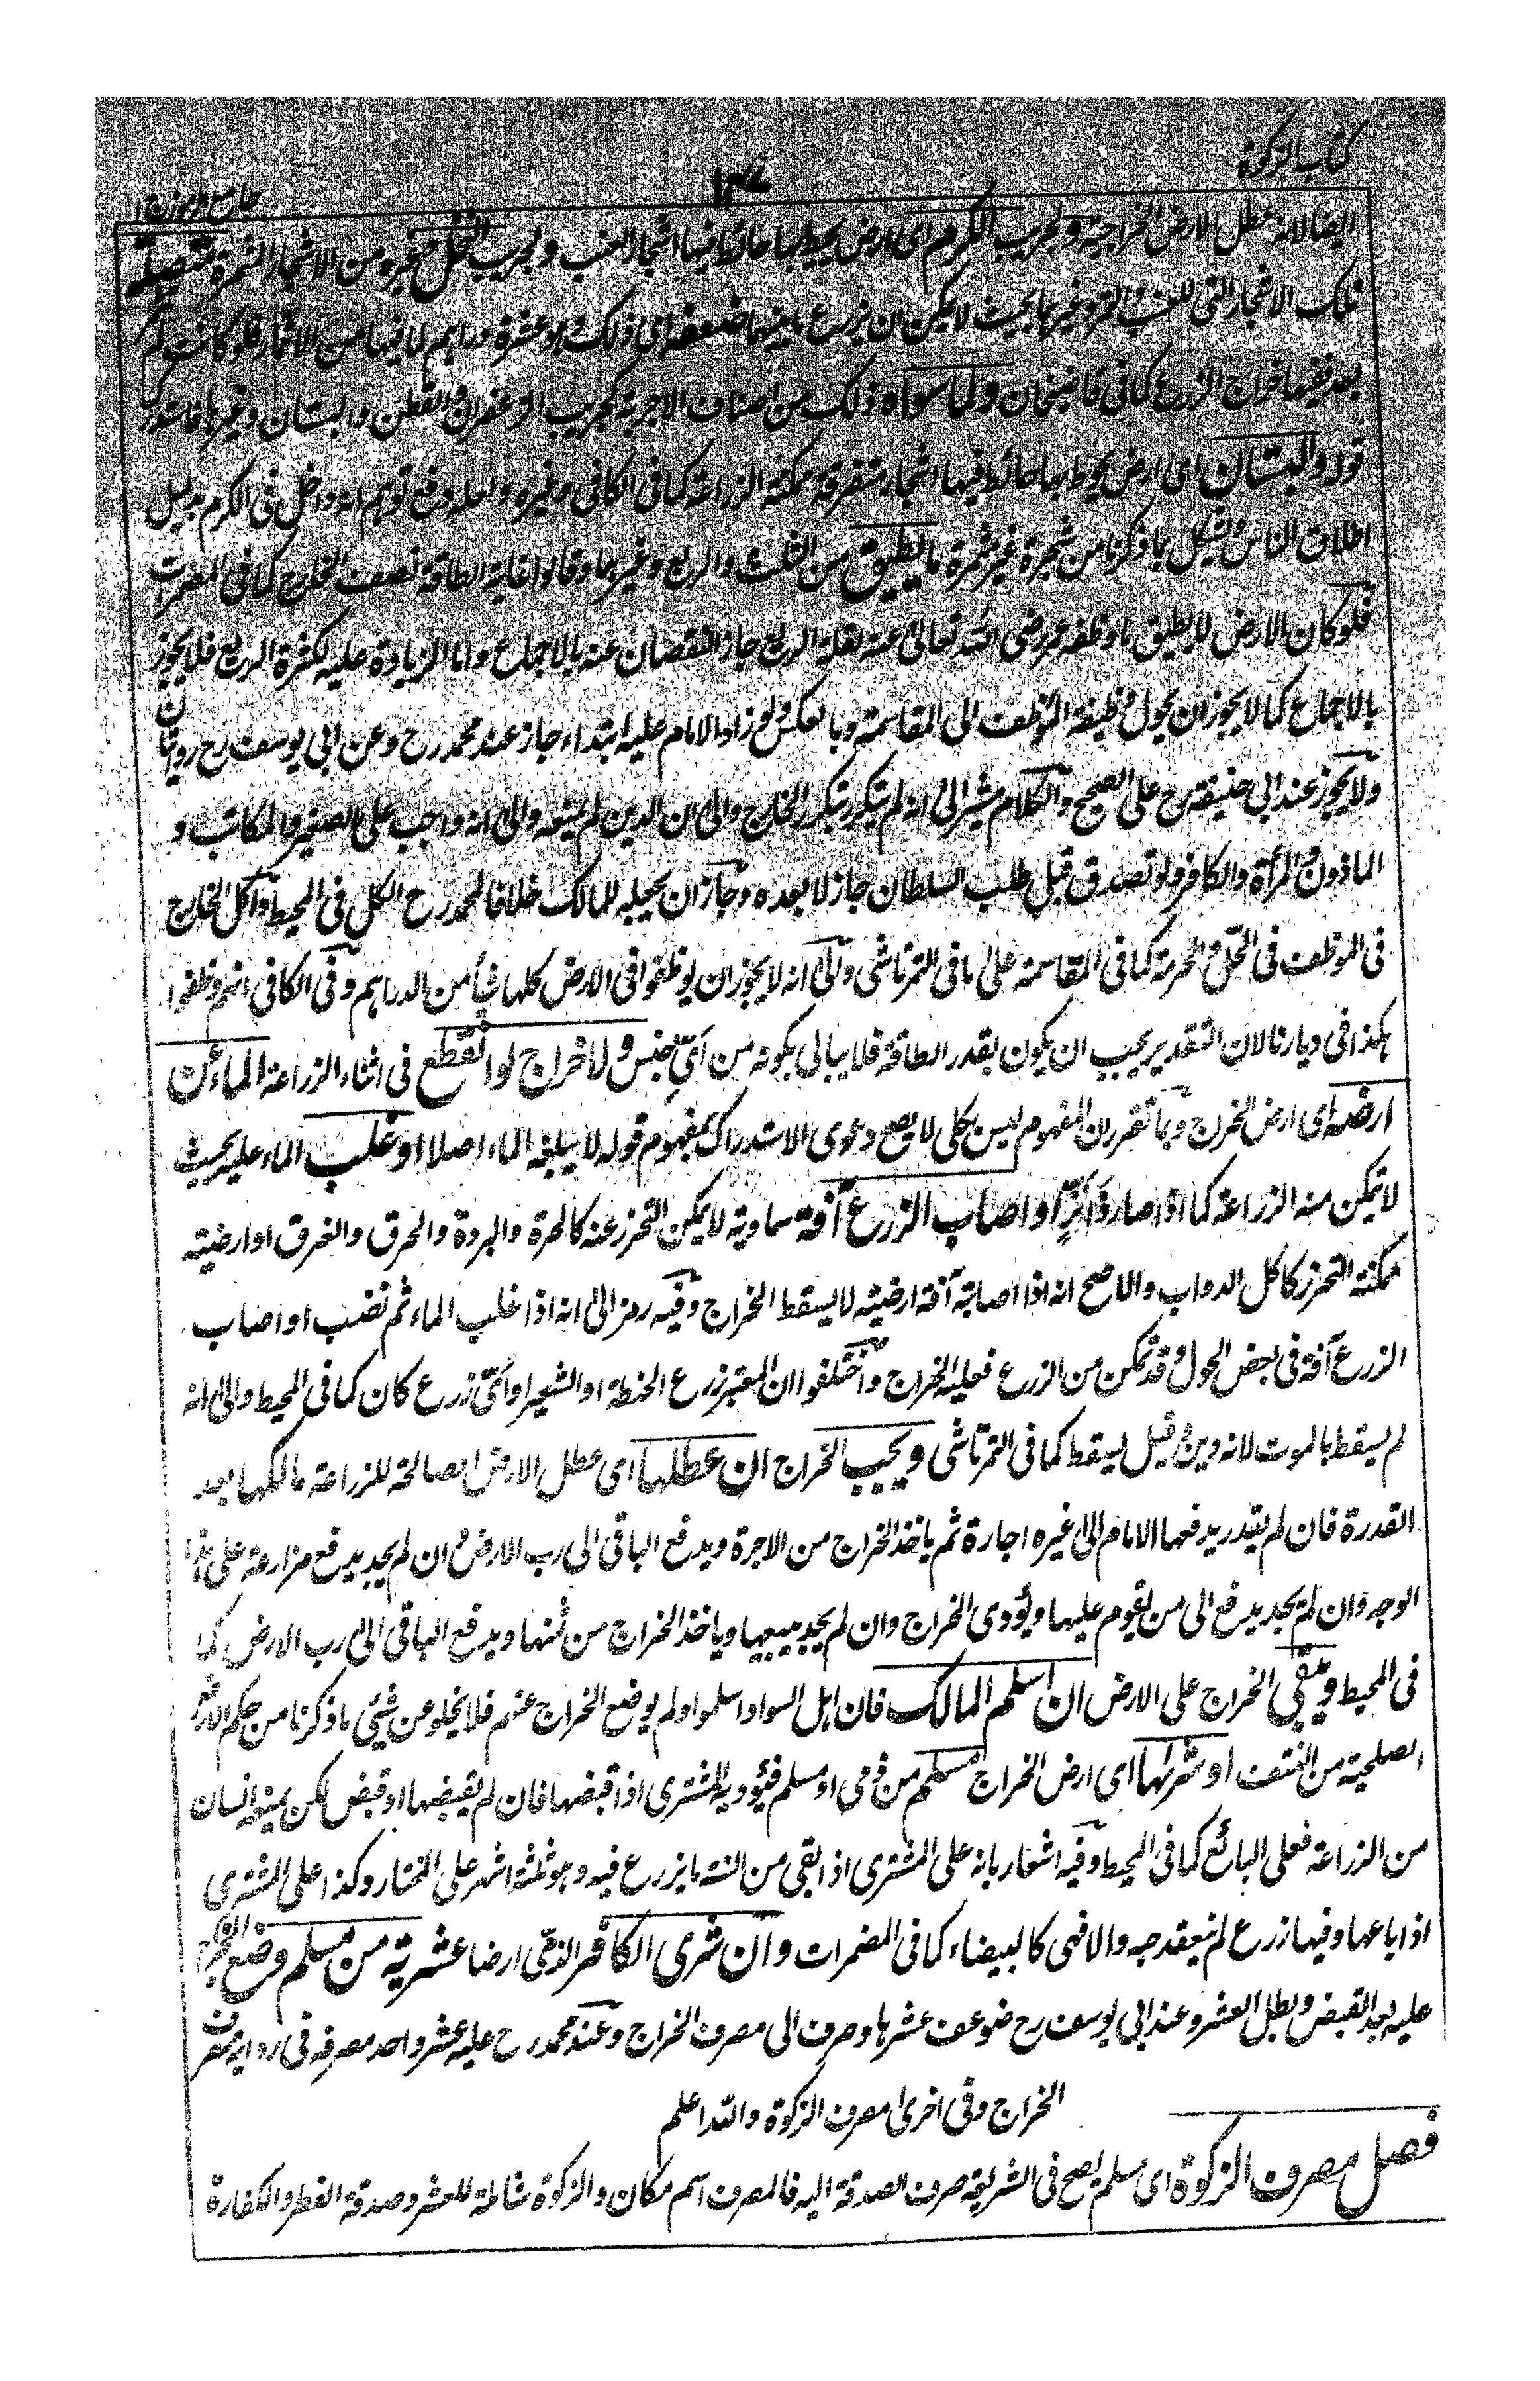 كتاب الزكوة
١٣٧
جامع الرموز ج ١
ايضا لانه عطل الارض الخراجية ولجريب الكرم اى ارض يحيط بها حائط فيها اشجار العنب ولجريب النخل وغيره من الاشجار المثمرة متصلة
تلك الاشجار التى للعنب والتمر وغيرهما بحيث لا يمكن ان يزرع ما بينها ضعفه اى ذلك وهو عشرة دراهم لما فيها من الاثمار فلو كانت لم
بعد ففيها خراج الزرع كما فى قاضيخان ولما سواه ذلك من اصناف الاجربة كجريب الزعفران والقطن والبستان وغيرها فاستدرك
قوله والبستان اى ارض يحوط بها حائط فيها اشجار متفرقة ممكنة الزراعة كما فى الكافى وغيره ولعله دفع توهم انه داخل فى الكرم بدليل
اطلاق الناس ويشكل بما ذكرنا من شجرة غير مثمرة ما يطيق من الثلث والربع وغيرهما وقالوا غاية الطاقة نصف الخارج كما فى المضمرات
فلو كان الارض لا يطيق ما وظفه عمر رضى الله تعالى عنه لقلة الريع جاز النقصان عنه بالاجماع واما الزيادة عليه لكثرة الريع فلا يجوز
بالاجماع كما لا يجوز ان يحول وظيفة الموظف الى المقاسمة وبالعكس ولو زاد الامام عليه ابتداء جاز عند محمد رح وعن ابى يوسف رح روايتان
ولا يجوز عند ابى حنيفة رح على الصحيح والكلام مشير الى انه لم يتكرر بتكرر الخارج والى ان الدين لم يمنعه والى انه واجب على الصغير والمكاتب و
الماذون والمرأة والكافر ولو تصدق قبل طلب السلطان جاز لا بعده وجاز ان يحيله للمالك خلافا لمحمد رح الكل فى المحيط واكل الخارج
فى الموظف فى الحل والحرمة كما فى المقاسمة على ما فى التمرتاشى والى انه لا يجوز ان يوظفوا فى الارض كلها شيأ من الدراهم وفى الكافى انهم وظفوا
هكذا فى ديارنا لان التقدير يجب ان يكون بقدر الطاقة فلا يبالى بكونه من اىّ جنس ولا خراج لو انقطع فى اثناء الزراعة الماء عن
ارضه اى ارض الخراج وبما تقرر ان المفهوم ليس بكلى لا يصح دعوى الاستدراك بمفهوم قوله لا يبلغه الماء اصلا او غلب الماء عليه بحيث
لا يمكن منه الزراعة كما اذا صار نزّا او اصاب الزرع آفة سماوية لا يمكن التحرز عنه كالحرة والبردة والحرق والغرق او ارضية
ممكنة التحرز كاكل الدواب والاصح انه اذا اصابته آفة ارضية لا يسقط الخراج وفيه رمز الى انه اذا غلب الماء ثم نضب او اصاب
الزرع آفة فى بعض الحول وقد تمكن من الزرع فعليه الخراج واختلفوا ان المعتبر زرع الحنطة او الشعير او اىّ زرع كان كما فى المحيط والى انه
لم يسقط بالموت لانه دين وقيل يسقط كما فى التمرتاشى ويجب الخراج ان عطلها اى عطل الارض الصالحة للزراعة مالكها بعد
القدرة فان لم يقدر يدفعها الامام الى غيره اجارة ثم ياخذ الخراج من الاجرة ويدفع الباقى الى رب الارض وان لم يجد يدفع مزارعة على هذا
الوجه وان لم يجد يدفع الى من يقوم عليها ويؤدى الخراج وان لم يجد يبيعها وياخذ الخراج من ثمنها ويدفع الباقى الى رب الارض كما
فى المحيط ويبقى الخراج على الارض ان اسلم المالك فان اهل السواد اسلموا ولم يوضع الخراج عنهم فلا يخلو عن شيئ ما ذكرنا من حكم الارض
الصلحية من النتف او شريها اى ارض الخراج مسلم من ذمى او مسلم فيؤديه المشترى اذا قبضها فان لم يقبضها او قبض لكن يمنعه انسان
من الزراعة فعلى البائع كما فى المحيط وفيه اشعار بانه على المشترى اذا بقى من السنة ما يزرع فيه وهو ثلثة اشهر على المختار وكذا على المشترى
اذا باعها وفيها زرع لم ينعقد حبه والا فهى كالبيضاء كما فى المضمرات وان شرى الكافر الذمّى ارضا عشرية من مسلم وضع الخراج
عليه بعد القبض وبطل العشر وعند ابى يوسف رح ضوعف عشرها وصرف الى مصرف الخراج وعند محمد رح عليه عشر واحد مصرفه فى رواية مصرف
الخراج وفى اخرى مصرف الزكوة والله اعلم
فصل مصرف الزكوة اى مسلم يصح فى الشريعة صرف الصدقة اليه فالمصرف اسم مكان والزكوة شاملة للعشر وصدقة الفطر والكفارة